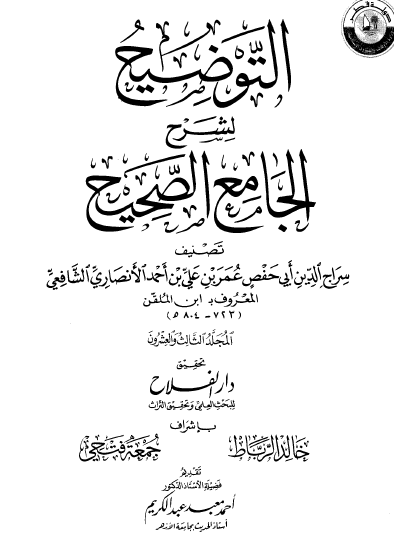 التَّوضِيحُ
لِشَرحِ
الجَامِعِ الصَّحِيحِ
تَصْنِيف
سِرَاجِ الدِّينِ أَبِي حَفْصٍ عُمَرَ بْنِ عَلِيِّ بْنِ أَحْمَدَ الأَنصَارِيِّ الشَّافِعِيِّ
المَعْرُوفِ بـ ابن المُلَقِّن
(٧٢٣ - ٨٠٤ هـ)
المُجَلَّدُ الثَّالِثُ وَالعِشْرُونَ
تحقيق
دار الفلاح
للبَحْثِ العِلمِي وَتَحقِيق التُّرَاث
بإشراف
خَالِد الرَّبَّاط جُمعَة فَتحِي
تقديم
فَضِيلَة الأُسْتَاذ الدكتور
أحمد معبد عبد الكريم
أستاذ الحديث بجامعة الأزهر